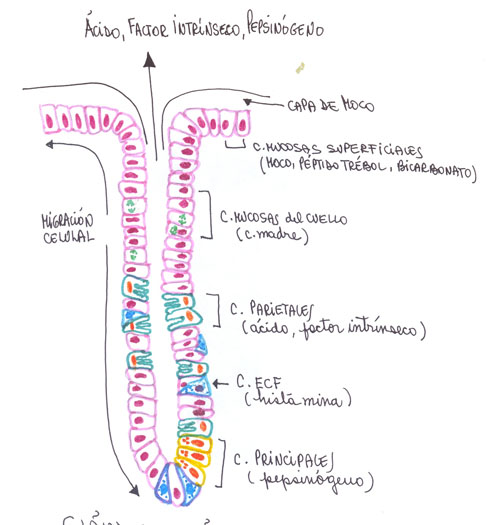 ÁCIDO, FACTOR INTRÍNSECO, PEPSINÓGENO
CAPA DE MOCO
C. MUCOSAS SUPERFICIALES
(MOCO, PÉPTIDO TRÉBOL, BICARBONATO)
MIGRACIÓN
CELULAL
C. MUCOSAS del CUELLO
(c. madre)
C. PARIETALES
(ácido, factor intrínseco)
C. ECF
(histamina)
C. PRINCIPALES
(pepsinógeno)